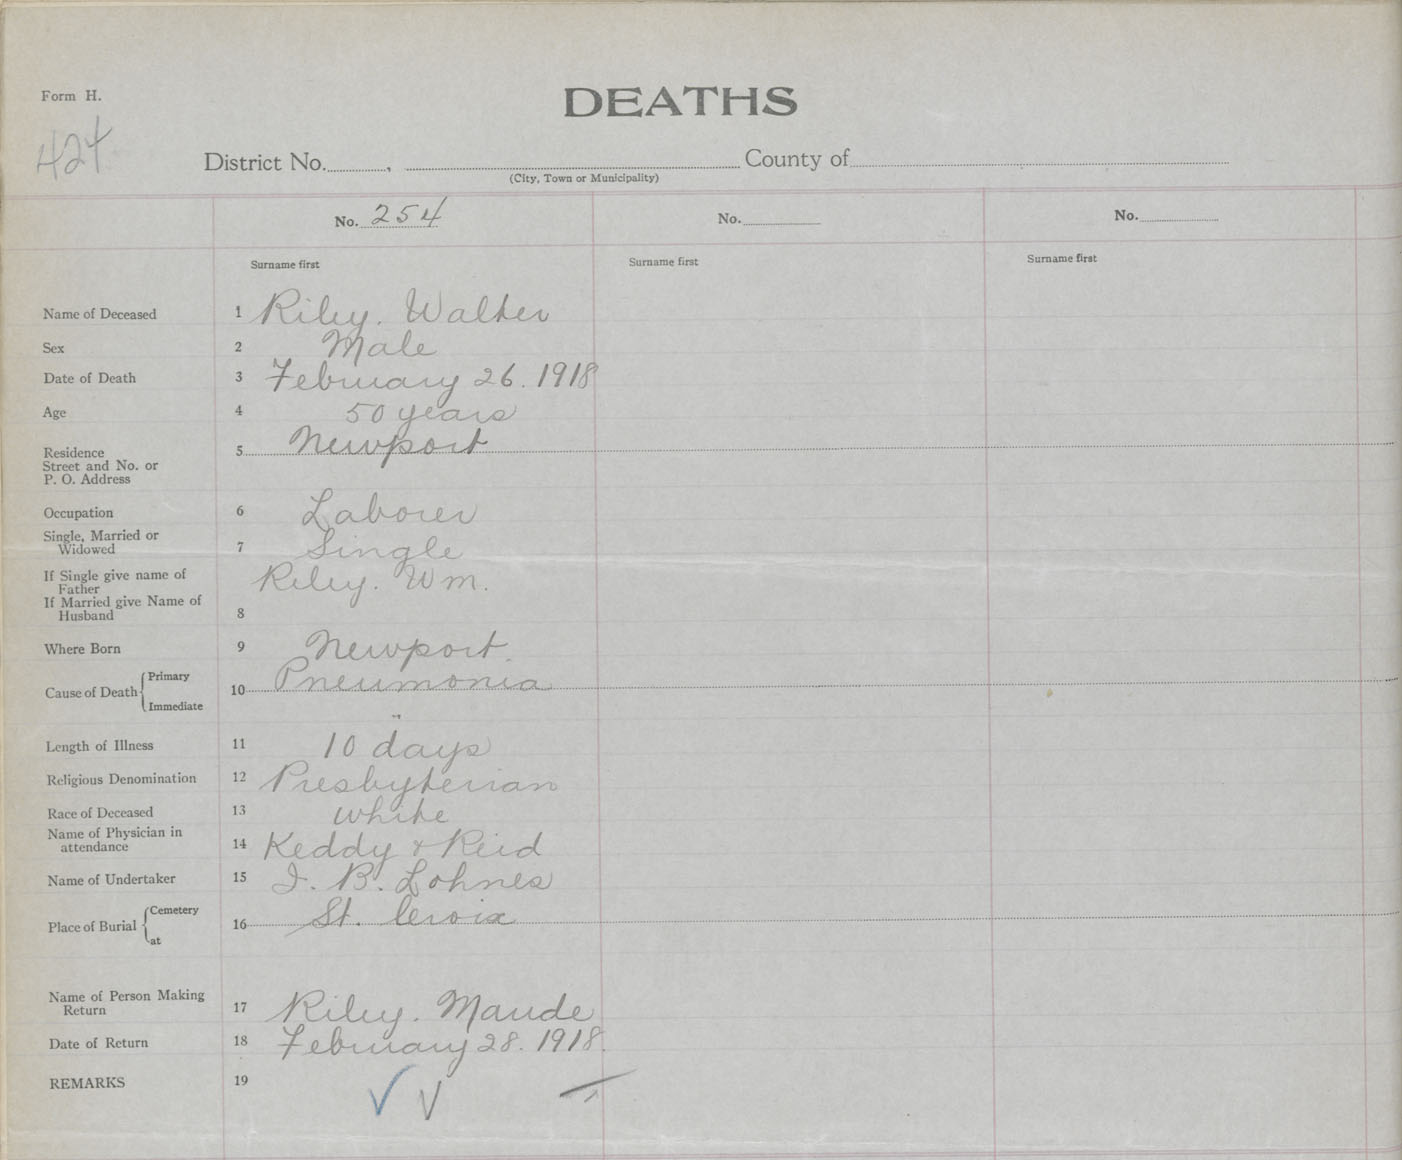 Form H.
DEATHS
424
District No. , County of
(City, Town or Municipality)
No. 254 No. No.
Surname first Surname first Surname first
Name of Deceased 1 Riley. Walter
Sex 2 Male
Date of Death 3 February 26. 1918
Age 4 50 years
Residence 5 Newport
Street and No. or
P. O. Address
Occupation 6 Laborer
Single, Married or
Widowed 7 Single
If Single give name of
Father Riley. Wm.
If Married give Name of
Husband 8
Where Born 9 Newport.
Cause of Death Primary 10 Pneumonia
Immediate "
Length of Illness 11 10 days
Religious Denomination 12 Presbyterian
Race of Deceased 13 White
Name of Physician in
attendance 14 Keddy & Reid
Name of Undertaker 15 I. B. Lohnes
Place of Burial Cemetery 16 St. Croix
at
Name of Person Making
Return 17 Riley. Maude
Date of Return 18 February 28. 1918.
REMARKS 19